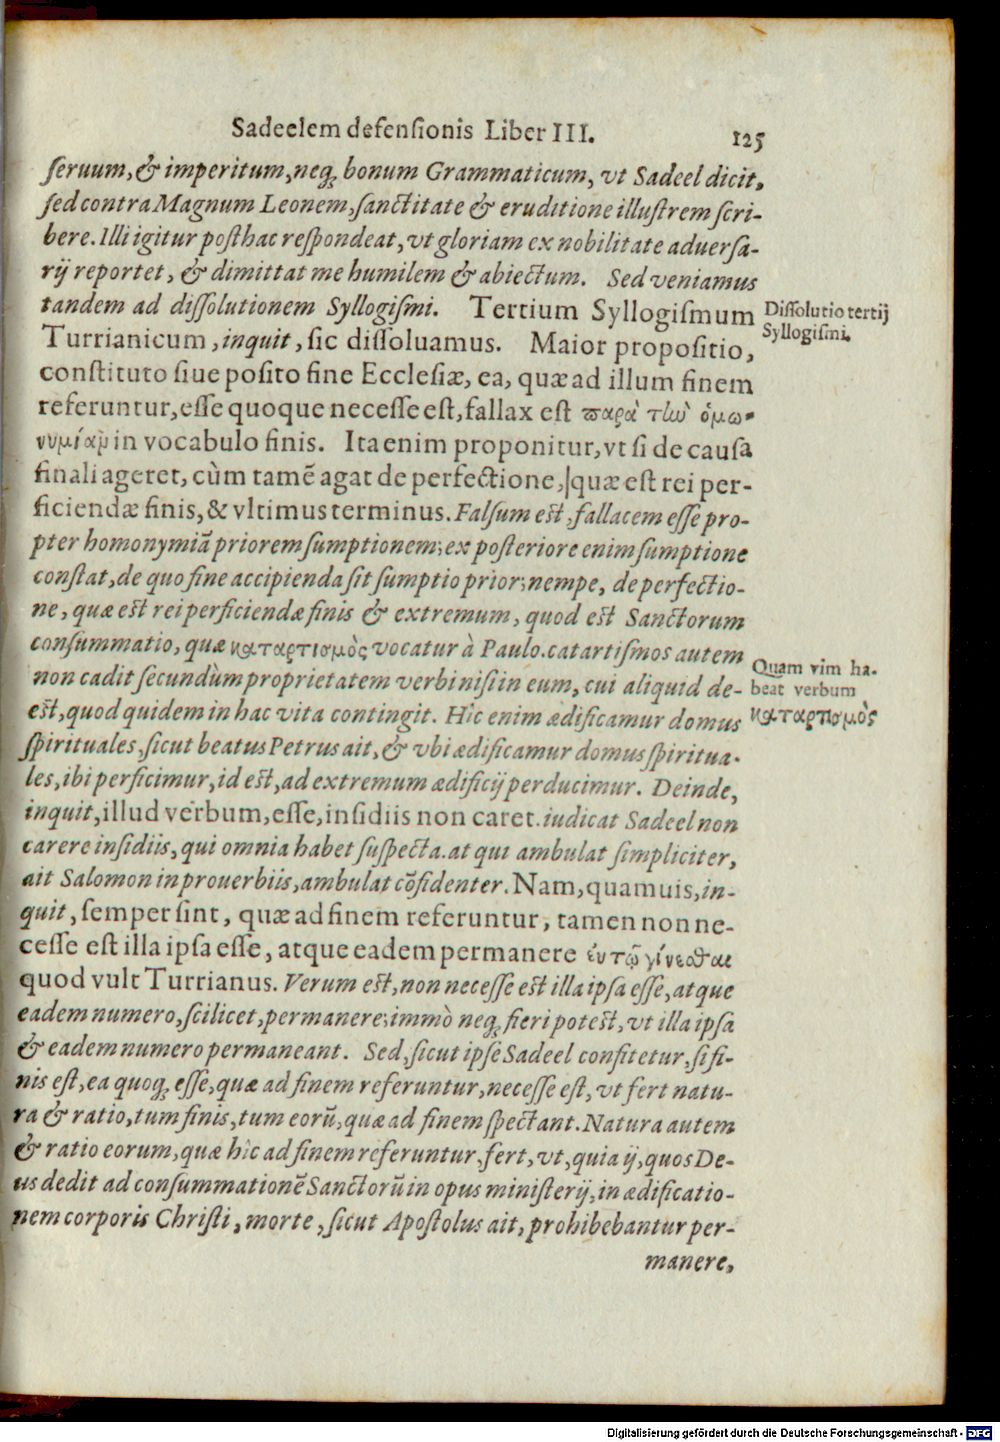 Sadeelem defensionis Liber III. 125
seruum, & imperitum, neq; bonum Grammaticum, vt Sadeel dicit,
sed contra Magnum Leonem, sanctitate & eruditione illustrem scri-
bere. Illi igitur posthac respondeat, vt gloriam ex nobilitate aduersa-
rij reportet, & dimittat me humilem & abiectum. Sed veniamus
tandem ad dissolutionem Syllogismi. Tertium Syllogismum
Dissolutio tertij
Syllogismi.
Turrianicum, inquit, sic dissoluamus. Maior propositio,
constituto siue posito fine Ecclesiæ, ea, quæ ad illum finem
referuntur, esse quoque necesse est, fallax est παρὰ τὼ ὁμω-
νυμίαν in vocabulo finis. Ita enim proponitur, vt si de causa
finali ageret, cùm tamē agat de perfectione, quæ est rei per-
ficiendæ finis, & vltimus terminus. Falsum est, fallacem esse pro-
pter homonymiā priorem sumptionem; ex posteriore enim sumptione
constat, de quo fine accipienda sit sumptio prior; nempe, de perfectio-
ne, quæ est rei perficiendæ finis & extremum, quod est Sanctorum
consummatio, quæ καταρτισμὸς vocatur à Paulo. catartismos autem
non cadit secundùm proprietatem verbi nisi in eum, cui aliquid de-
Quam vim ha-
beat verbum
καταρτισμὸς
est, quod quidem in hac vita contingit. Hîc enim ædificamur domus
spirituales, sicut beatus Petrus ait, & vbi ædificamur domus spiritua-
les, ibi perficimur, id est, ad extremum ædificij perducimur. Deinde,
inquit, illud verbum, esse, insidiis non caret. iudicat Sadeel non
carere insidiis, qui omnia habet suspecta. at qui ambulat simpliciter,
ait Salomon in prouerbiis, ambulat cōfidenter. Nam, quamuis, in-
quit, semper sint, quæ ad finem referuntur, tamen non ne-
cesse est illa ipsa esse, atque eadem permanere ἐν τῷ γίνεσθαι
quod vult Turrianus. Verum est, non necesse est illa ipsa esse, atque
eadem numero, scilicet, permanere; immò neq; fieri potest, vt illa ipsa
& eadem numero permaneant. Sed, sicut ipse Sadeel confitetur, si fi-
nis est, ea quoq; esse, quæ ad finem referuntur, necesse est, vt fert natu-
ra & ratio, tum finis, tum eorū, quæ ad finem spectant. Natura autem
& ratio eorum, quæ hîc ad finem referuntur, fert, vt, quia ij, quos De-
us dedit ad consummationē Sanctorū in opus ministerij, in ædificatio-
nem corporis Christi, morte, sicut Apostolus ait, prohibebantur per-
manere,
Digitalisierung gefördert durch die Deutsche Forschungsgemeinschaft - DFG